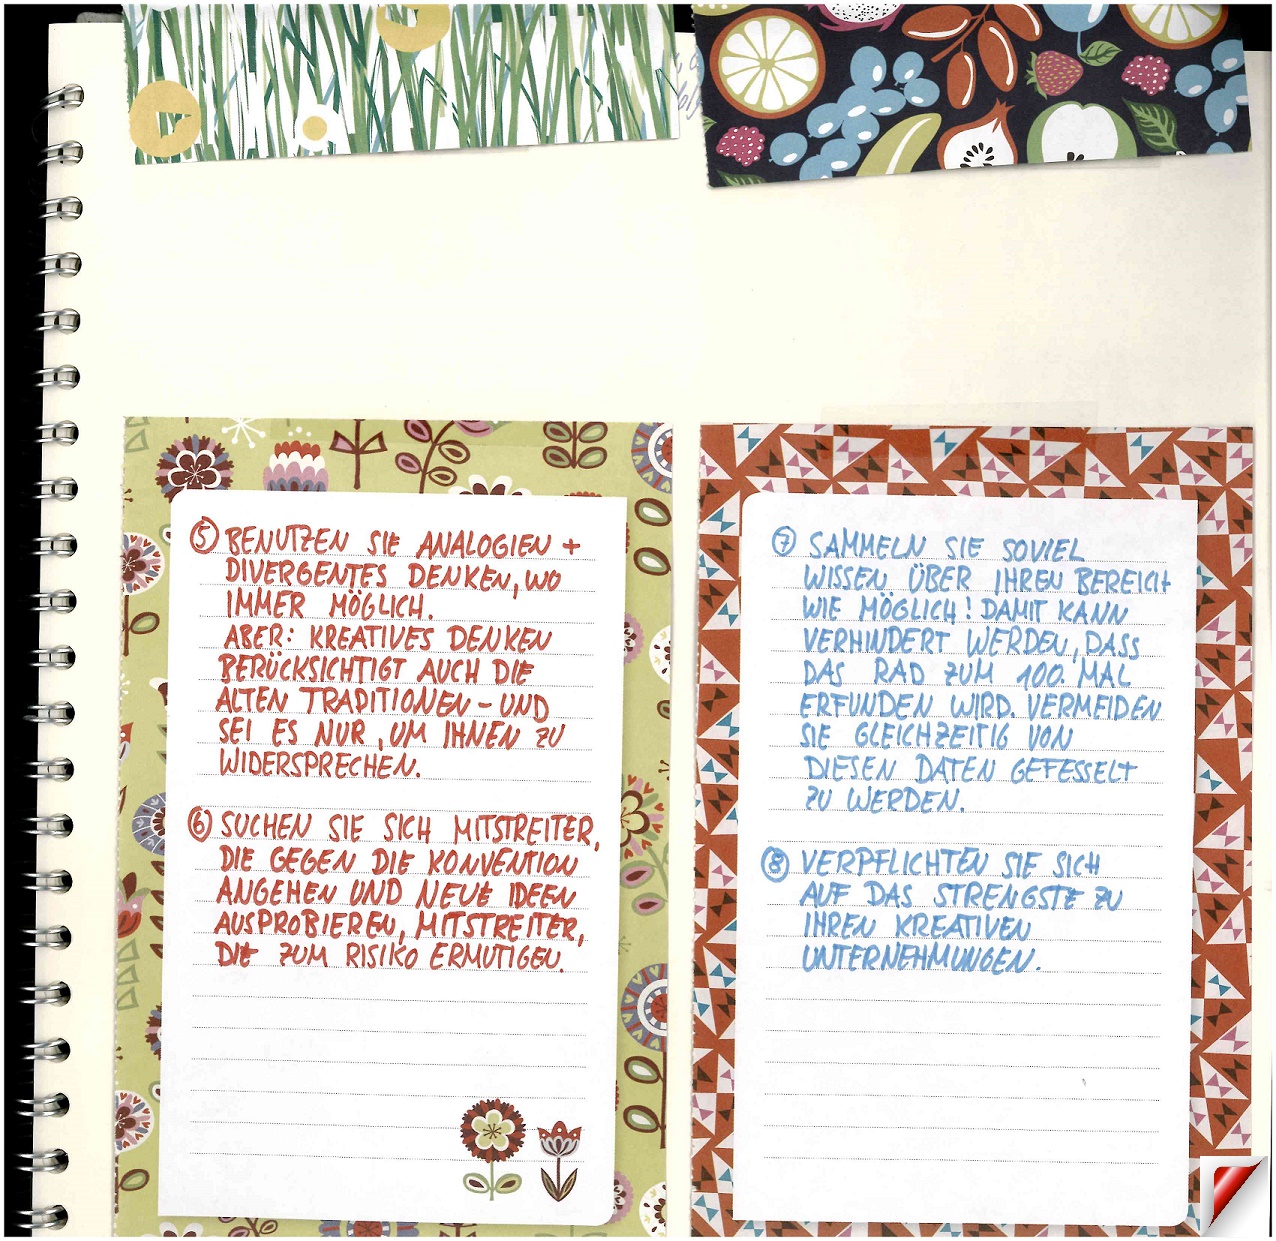 ⑤ BENUTZEN SIE ANALOGIEN +
DIVERGENTES DENKEN, WO
IMMER MÖGLICH.
ABER: KREATIVES DENKEN
BERÜCKSICHTIGT AUCH DIE
ALTEN TRADITIONEN - UND
SEI ES NUR, UM IHNEN ZU
WIDERSPRECHEN.
⑥ SUCHEN SIE SICH MITSTREITER,
DIE GEGEN DIE KONVENTION
ANGEHEN UND NEUE IDEEN
AUSPROBIEREN, MITSTREITER,
DIE ZUM RISIKO ERMUTIGEN.
⑦ SAMMELN SIE SOVIEL
WISSEN ÜBER IHREN BEREICH
WIE MÖGLICH! DAMIT KANN
VERHINDERT WERDEN, DASS
DAS RAD ZUM 100. MAL
ERFUNDEN WIRD. VERMEIDEN
SIE GLEICHZEITIG VON
DIESEN DATEN GEFESSELT
ZU WERDEN.
⑧ VERPFLICHTEN SIE SICH
AUF DAS STRENGSTE ZU
IHREN KREATIVEN
UNTERNEHMUNGEN.